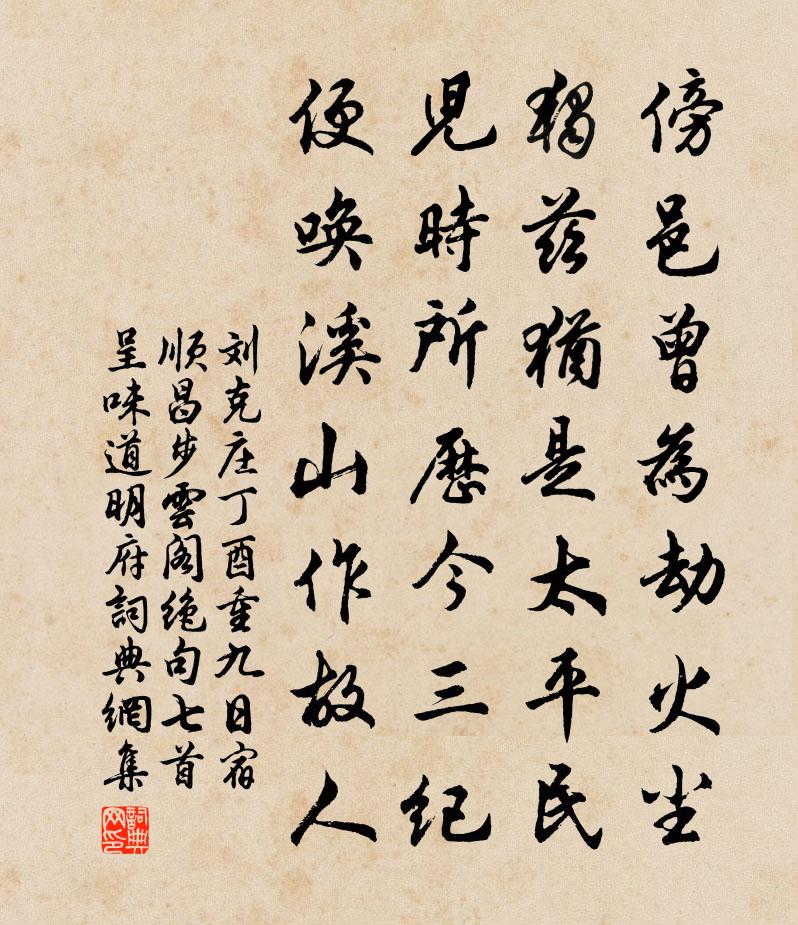 傍邑曾為劫火尘
獨茲猶是太平民
兒時所歷今三紀
便喚溪山作故人
刘克庄丁酉重九日宿
順昌步雲閣絶句七首
呈味道明府詞典網集
詞典网印